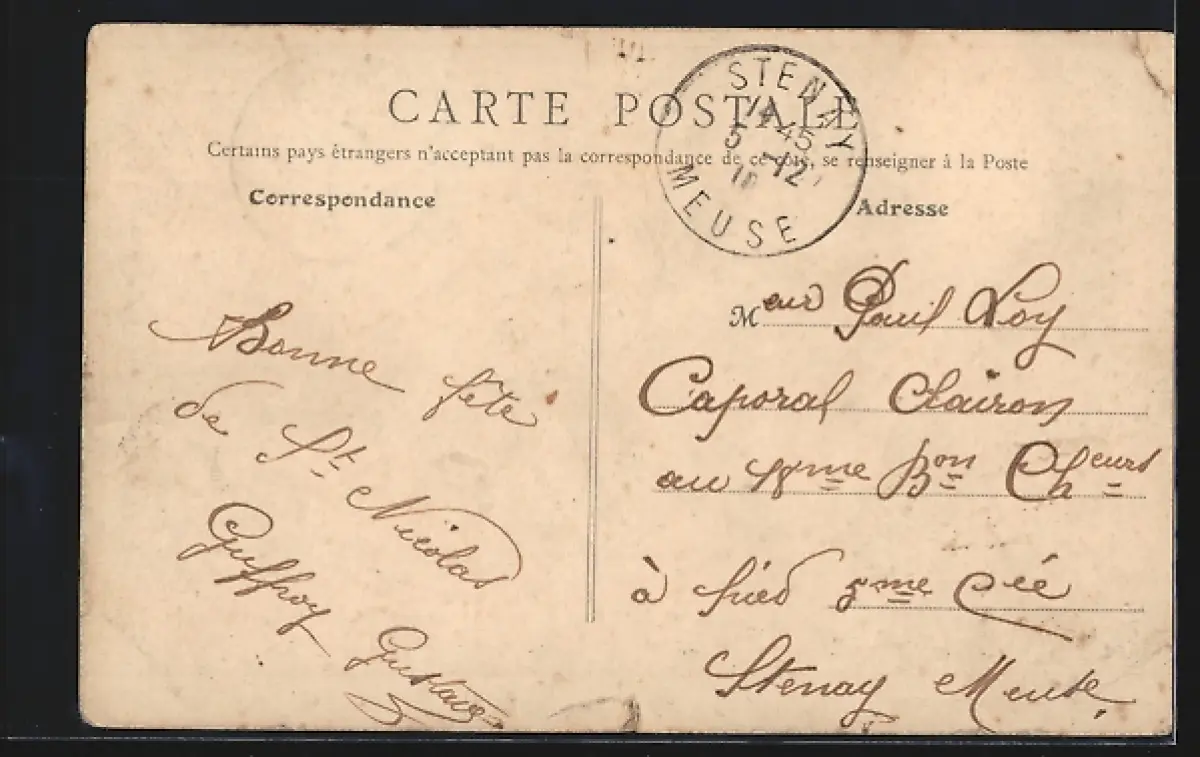 CARTE POSTALE
Certains pays étrangers n'acceptant pas la correspondance de ce côté, se renseigner à la Poste
STENAY
14 45
5 12
10
MEUSE
Correspondance
Bonne fête
de St Nicolas
Guffroy
Gustave
Adresse
Meur Paul Loy
Caporal Clairon
au 18eme Bon Cheurs
à pied 5me Cie
Stenay Meuse.